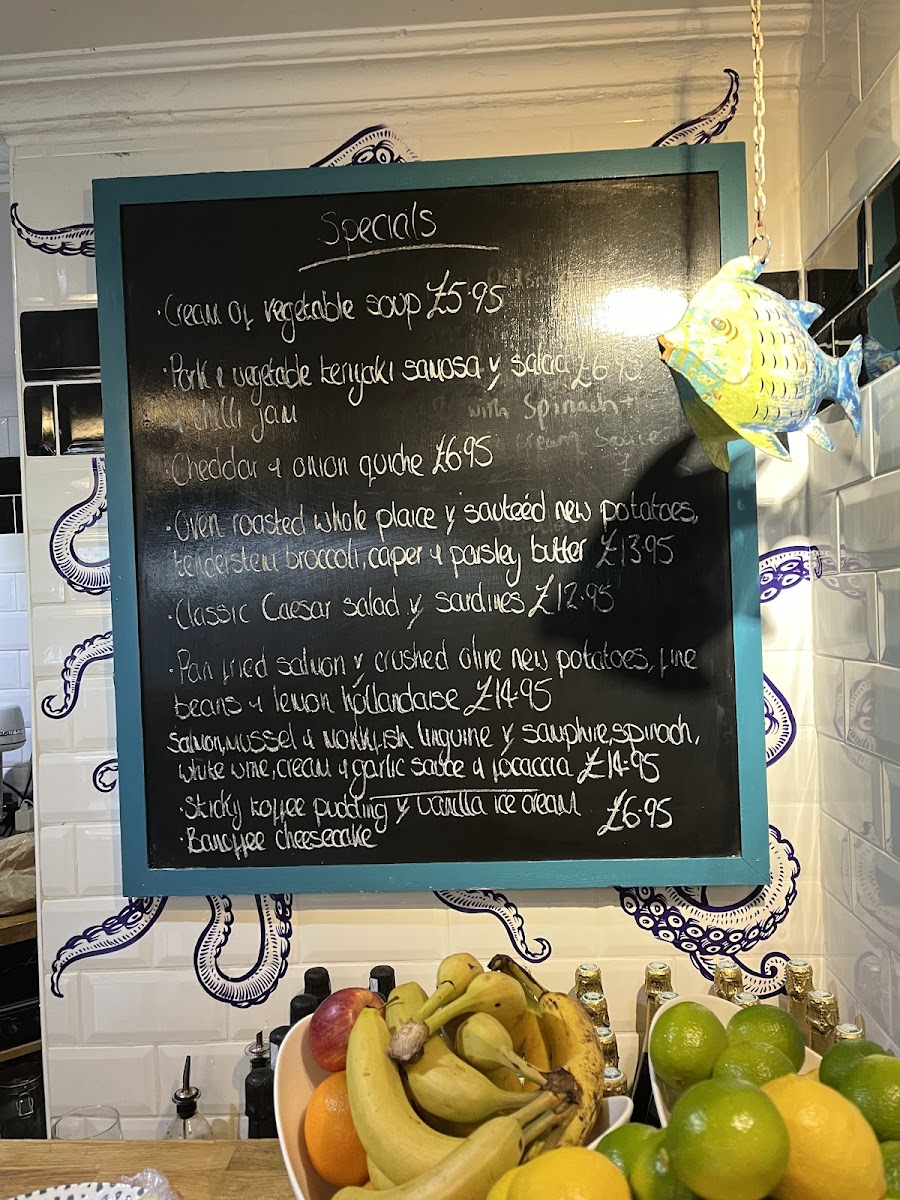 Specials
·Cream of vegetable soup £5.95
·Pork & vegetable teriyaki samosa y salad £6.95
chilli jam
with Spinach +
cream Sauce
·Cheddar & onion quiche £6.95
·Oven roasted whole plaice y sautéed new potatoes,
tenderstem broccoli, caper & parsley butter £13.95
·Classic Caesar salad y sardines £12.95
·Pan fried salmon y crushed olive new potatoes, fine
beans & lemon hollandaise £14.95
Salmon, mussel & monkfish linguine y samphire, spinach,
white wine, cream & garlic sauce & focaccia £14.95
·Sticky toffee pudding y vanilla ice cream £6.95
·Banoffee cheesecake